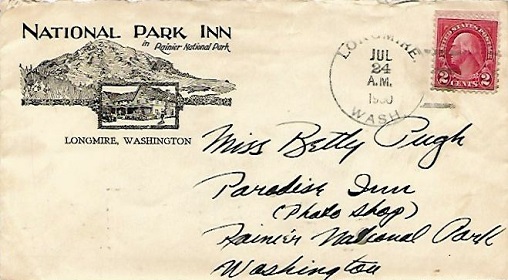 NATIONAL PARK INN
in Rainier National Park
LONGMIRE, WASHINGTON
LONGMIRE,
JUL
24
A.M.
1930
WASH.
UNITED STATES POSTAGE
2 CENTS 2
Miss Betty Pugh
Paradise Inn
(Photo Shop)
Rainier National Park
Washington